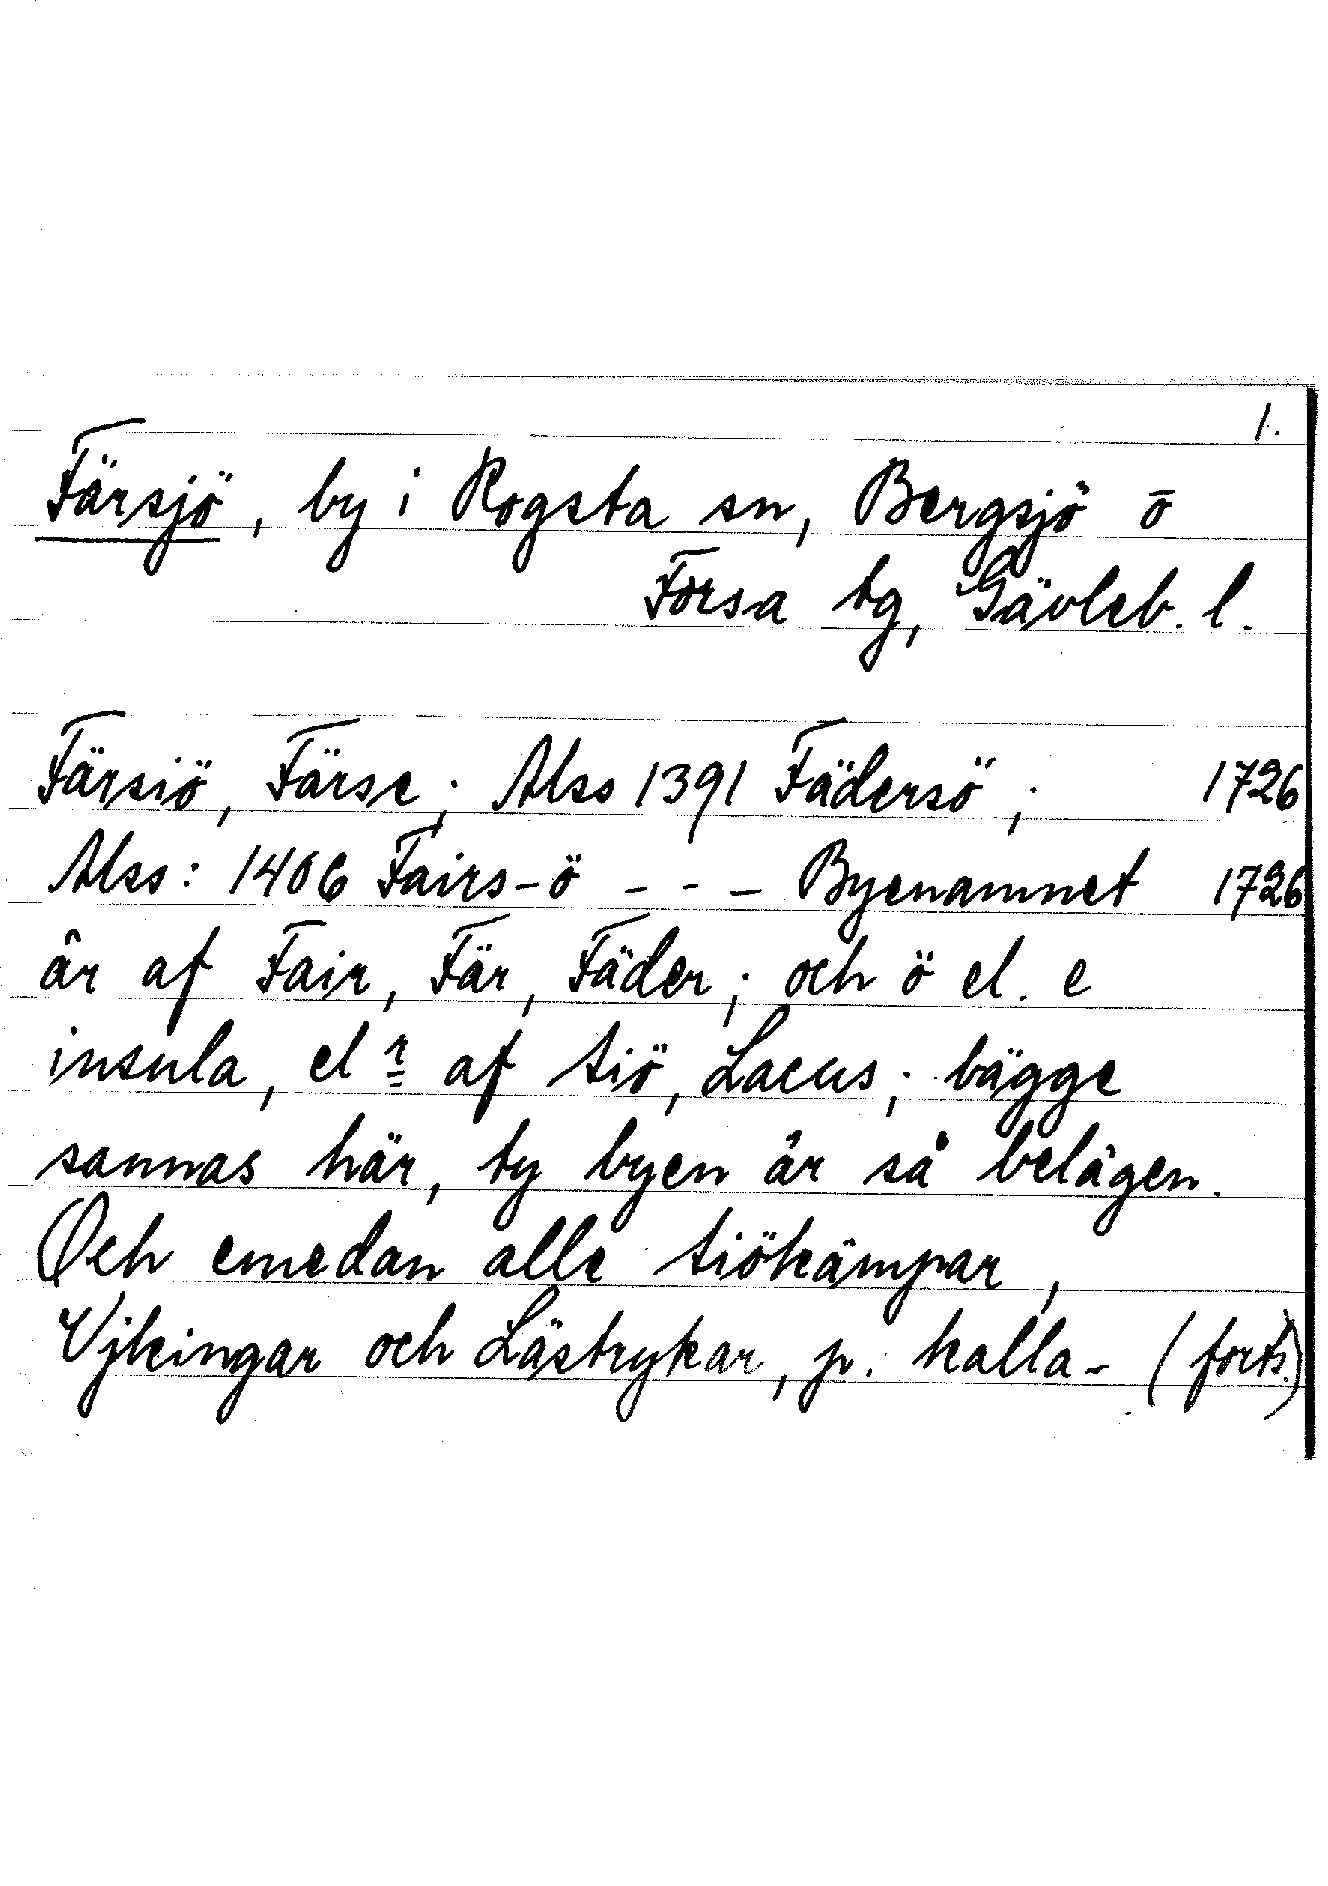 1.
Färsjö, by i Rogsta sn, Bergsjö o
Forsa tg, Gävleb. l.
Färsiö, Färse; Alss 1391 Fädersö; 1726
Alss: 1406 Fairs-ö - - - Byenamnet 1726
är af Fair, Fär, Fäder; och ö el. e
insula, elr af siö, Lacus; bägge
sannas här, ty byen är så belägen.
Och emedan alle siökämpar,
Vjkingar och Lästrykar, p. kalla- (forts.)